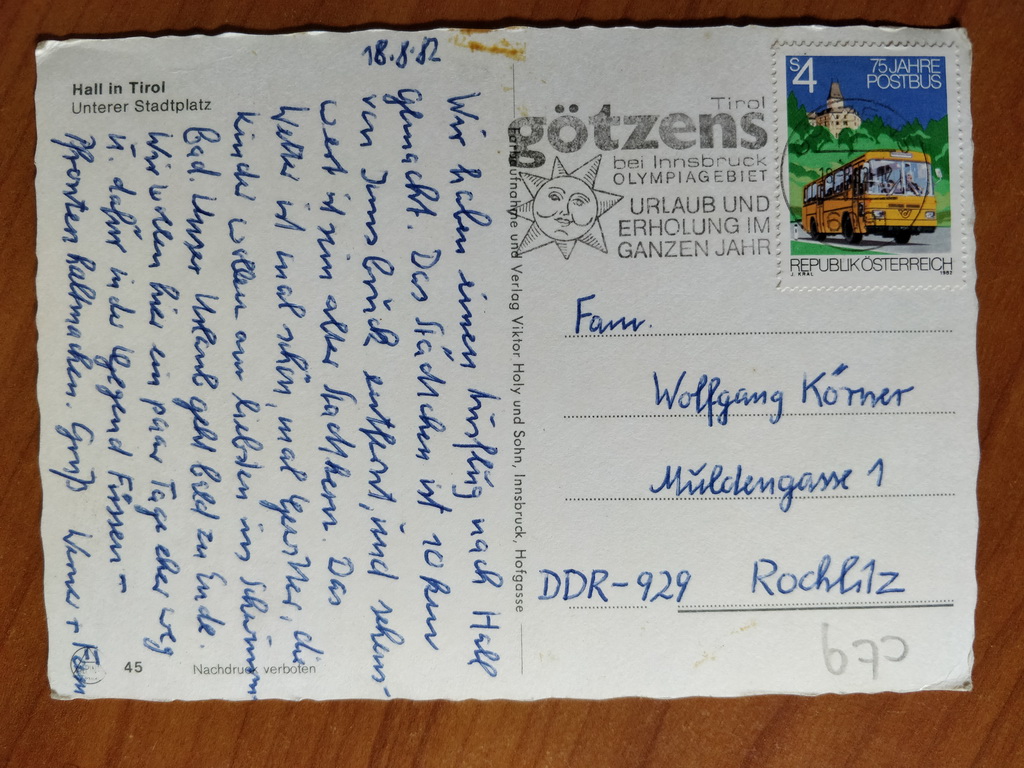 Hall in Tirol
Unterer Stadtplatz
18.8.82
Wir haben einen Ausflug nach Hall
gemacht. Das Städtchen ist 10 km
von Innsbruck entfernt, und sehens-
wert ist sein alter Stadtkern. Das
Wetter ist mal schön, mal Gewitter, die
Kinder wollen am liebsten ins Schwimm
Bad. Unser Urlaub geht bald zu Ende.
Wir wollen hier ein paar Tage eher weg
u. dafür in der Gegend Füssen –
Pfronten haltmachen. Gruß Werner +
45
Nachdruck verboten
Farbaufnahme und Verlag Viktor Holy und Sohn, Innsbruck, Hofgasse
Tirol
götzens
bei Innsbruck
OLYMPIAGEBIET
URLAUB UND
ERHOLUNG IM
GANZEN JAHR
S 4
75 JAHRE
POSTBUS
REPUBLIK ÖSTERREICH
J. KRAL 1982
Fam.
Wolfgang Körner
Muldengasse 1
DDR-929 Rochlitz